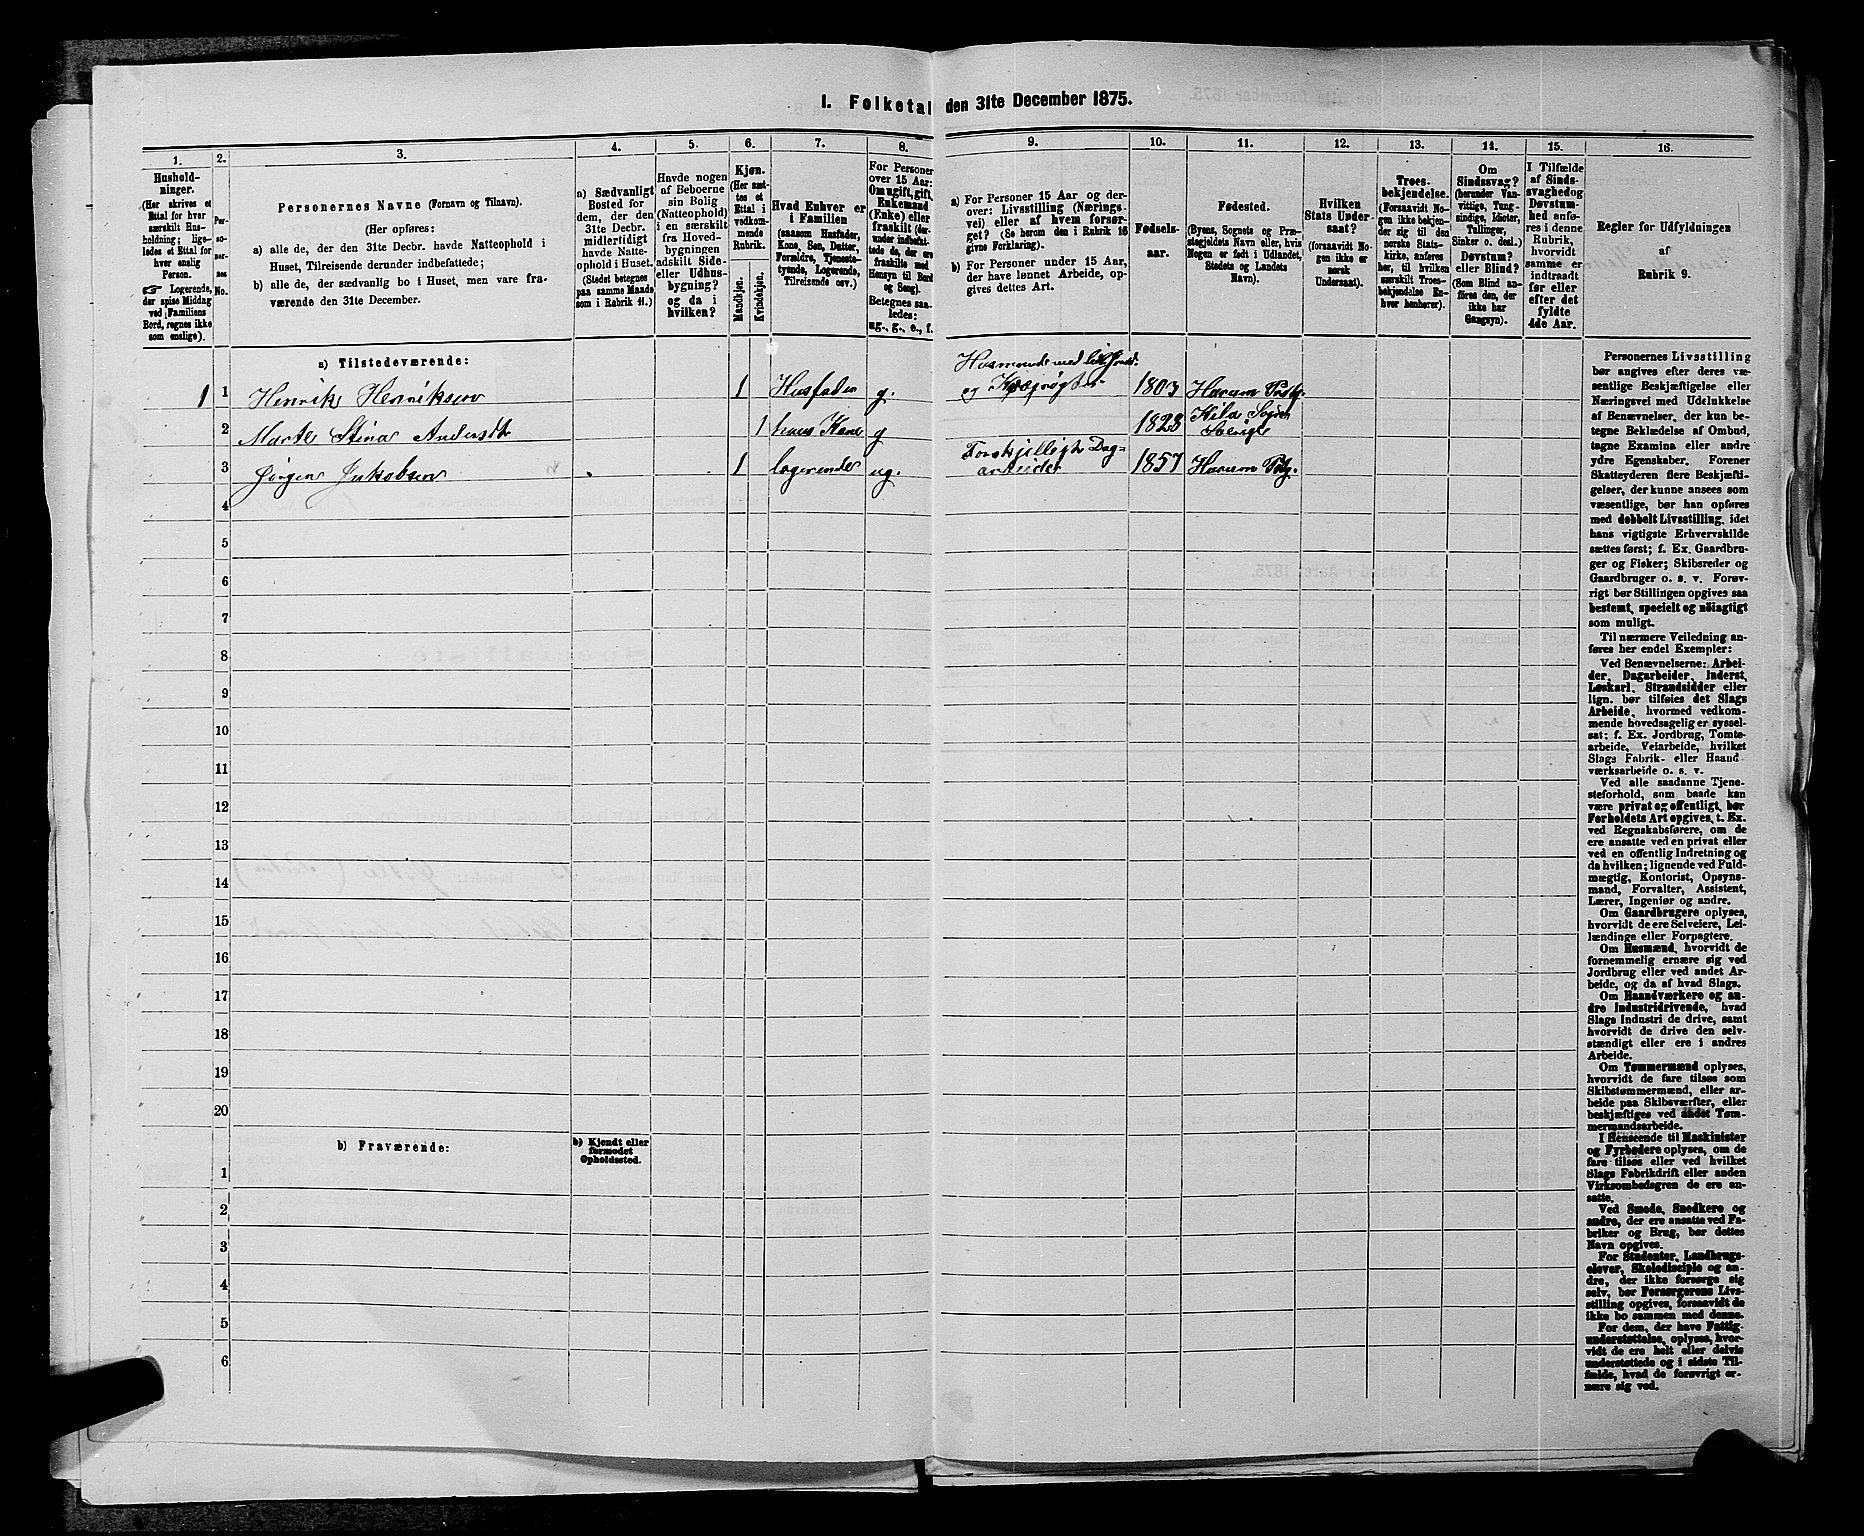 I. Folketal den 31te December 1875.
1.
2.
3.
4.
5.
6.
7.
8.
9.
10.
11.
12.
13.
14.
15.
16.
Hushold-
ninger.
(Her skrives et
Ettal for hver
særskilt Hus-
holdning; lige-
ledes et Ettal for
hver enslig
Person.
☞ Logerende,
der spise Middag
ved Familiens
Bord, regnes ikke
som enslige).
Per-
so-
ner-
nes
No.
Personernes Navne (Fornavn og Tilnavn).
(Her opføres:
a) alle de, der den 31te Decbr. havde Natteophold i
Huset, Tilreisende derunder indbefattede;
b) alle de, der sædvanlig bo i Huset, men vare fra-
værende den 31te December.
a) Sædvanligt
Bosted for
dem, der den
31te Decbr.
midlertidigt
havde Natte-
ophold i Huset.
(Stedet betegnes
paa samme Maade
som i Rubrik 11.)
Havde nogen
af Beboerne
sin Bolig
(Natteophold)
i en særskilt
fra Hoved-
bygningen
adskilt Side-
eller Udhus-
bygning?
og da i
hvilken?
Kjøn.
(Her sæt-
tes et
Ettal i
vedkom-
mende
Rubrik.
Mandkjøn.
Kvindekjøn.
Hvad Enhver er
i Familien
(saasom Husfader,
Kone, Søn, Datter,
Forældre, Tjeneste-
tyende, Logerende,
Tilreisende osv.)
For Personer
over 15 Aar:
Om ugift, gift,
Enkemand
(Enke) eller
fraskilt (der-
under indbefat-
tede de, der ere
fraskilte med
Hensyn til Bord
og Seng).
Betegnes saa-
ledes:
ug., g., e., f.
a) For Personer 15 Aar og der-
over: Livsstilling (Nærings-
vei) eller af hvem forsør-
get? (Se herom den i Rubrik 16
givne Forklaring).
b) For Personer under 15 Aar,
der have lønnet Arbeide, op-
gives dettes Art.
Fødsels-
aar.
Fødested.
(Byens, Sognets og Præ-
stegjeldets Navn eller, hvis
Nogen er født i Udlandet,
Stedets og Landets
Navn).
Hvilken
Stats Under-
saat?
(forsaavidt No-
gen ikke er
norsk
Undersaat).
Troes-
bekjendelse.
(Forsaavidt No-
gen ikke bekjen-
der sig til den
norske Stats-
kirke, anføres
her, til hvilken
særskilt Troes-
bekjendelse En-
hver henhører).
Om
Sindssvag?
(herunder Van-
vittige, Tung-
sindige, Idioter,
Tullinger,
Sinker o. desl.)
Døvstum?
eller Blind?
(Som Blind an-
føres den, der
ikke har
Gangsyn).
I Tilfælde
af Sinds-
svaghed og
Døvstum-
hed anfø-
res i denne
Rubrik,
hvorvidt
samme er
indtraadt
før eller
efter det
fyldte
4de Aar.
Regler for Udfyldningen
af
Rubrik 9.
a) Tilstedeværende:
1 1 Henrik Henriksen 1 Husfader g. Husmand med og 1803
2 Marte Stina Andersdt 1 hans Kone g 1828 Kila Sogn Sverige
3 Jørgen Jakobsen 1 logerende ug. Forskjelligt Dag= arbeide 1857
4
5
6
7
8
9
10
11
12
13
14
15
16
17
18
19
20
b) Fraværende:
b) Kjendt eller
formodet
Opholdssted.
1
2
3
4
5
6
Personernes Livsstilling
bør angives efter deres væ-
sentlige Beskjæftigelse eller
Næringsvei med Udelukkelse
af Benævnelser, der kun be-
tegne Beklædelse af Ombud,
tagne Examina eller andre
ydre Egenskaber. Forener
Skatteyderen flere Beskjæfti-
gelser, der kunne ansees som
væsentlige, bør han opføres
med dobbelt Livsstilling, idet
hans vigtigste Erhvervskilde
sættes først; f. Ex. Gaardbru-
ger og Fisker; Skibsreder og
Gaardbruger o. s. v. Forøv-
rigt bør Stillingen opgives saa
bestemt, specielt og nöiagtigt
som muligt.
Til nærmere Veiledning an-
føres her endel Exempler:
Ved Benævnelserne: Arbei-
der, Dagarbeider, Inderst,
Løskarl, Strandsidder eller
lign. bør tilføies det Slags
Arbeide, hvormed vedkom-
mende hovedsagelig er syssel-
sat; f. Ex. Jordbrug, Tomte-
arbeide, Veiarbeide, hvilket
Slags Fabrik- eller Haand-
værksarbeide o. s. v.
Ved alle saadanne Tjene-
steforhold, som baade kan
være privat og offentligt, bør
Forholdets Art opgives, t. Ex.
ved Regnskabsførere, om de
ere ansatte ved en privat eller
ved en offentlig Indretning og
da hvilken; lignende ved Fuld-
mægtig, Kontorist, Opsyns-
mand, Forvalter, Assistent,
Lærer, Ingeniør og andre.
Om Gaardbrugere oplyses,
hvorvidt de ere Selveiere, Lei-
lændinge eller Forpagtere.
Om Husmænd, hvorvidt de
fornemmelig ernære sig ved
Jordbrug eller ved andet Ar-
beide, og da af hvad Slags.
Om Haandværkere og an-
dre Industridrivende, hvad
Slags Industri de drive, samt
hvorvidt de drive den selv-
stændigt eller ere i andres
Arbeide.
Om Tømmermænd oplyses,
hvorvidt de fare tilsøs som
Skibstømmermænd, eller ar-
beide paa Skibsværfter, eller
beskjæftiges ved andet Tøm-
mermandsarbeide.
I Henseende til Maskinister
og Fyrbødere oplyses, om de
fare tilsøs eller ved hvilket
Slags Fabrikdrift eller anden
Virksomhedsgren de ere an-
satte.
Ved Smede, Snedkere og
andre, der ere ansatte ved Fa-
briker og Brug, bør dettes
Navn opgives.
For Studenter, Landbrugs-
elever, Skoledisciple og an-
dre, der ikke forsørge sig
selv, bør Forsørgerens Livs-
stilling opgives, forsaavidt de
ikke bo sammen med denne.
For dem, der have Fattig-
understøttelse, oplyses, hvor-
vidt de ere helt eller delvis
understøttede og i sidste Til-
fælde, hvad de forøvrigt er-
nære sig ved.